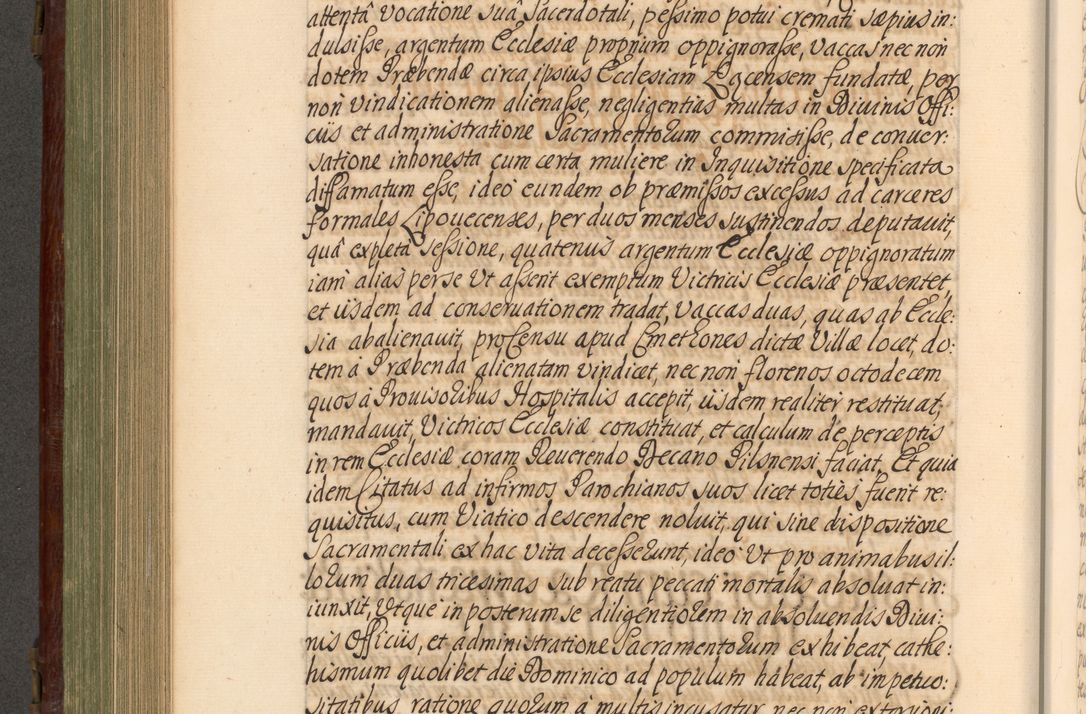 attentâ vocatione suâ Sacerdotali, pessimo potui cremati sæpius in:
dulsisse, argentum Ecclesiæ proprium oppignorasse, vaccas nec non
dotem Præbendæ circa ipsius Ecclesiam Lgcensem fundatæ, per
non vindicationem alienasse, negligentias multas in Diuinis Offi:
cÿs et administratione Sacramentorum commisisse, de conuer:
satione inhonesta cum certa muliere in Inquisitione specificata
diffamatum esse, ideo eundem ob præmissos excessus ad carceres
formales Lipouecenses, per duos menses sustinendos deputauit,
quâ expletâ sessione, quatenus argentum Ecclesiæ oppignoratum
iam alias per se ut asserit exemptum Victricis Ecclesiæ præsentet,
et iisdem ad conseruationem tradat, vaccas duas, quas ab Eccle:
sia abalienauit, pro Censu apud Cmethones dictæ Villæ locet, do:
tem à Præbenda alienatam vindicet, nec non florenos octodecem
quos à Prouisoribus Hospitalis accepit, iisdem realiter restituat,
mandauit, Victricos Ecclesiæ constituat, et calculum de perceptis
in rem Ecclesiæ coram Reuerendo Decano Pilsnensi faciat, Et quia
idem Citatus ad infirmos Parochianos suos licet toties fuerit re:
quisitus, cum Viatico descendere noluit, qui sine dispositione
Sacramentali ex hac vita decesserunt, ideo ut pro animabus il:
lorum duas tricesimas sub reatu peccati mortalis absoluat in:
iunxit, utque in posterum se diligentiorem in absoluendis Diui:
nis Officiis, et administratione Sacramentorum exhibeat, cathe:
hismum quolibet die Dominico ad populum habeat, ab impetuo:
sitatibus ratione quorum à multis incusatur nec non